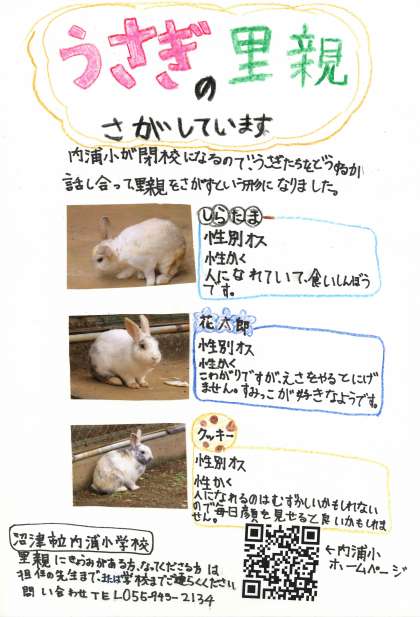 うさぎの里親
さがしています
内浦小が閉校になるので、うさぎたちをどうするか
話し合って、里親をさがすという形になりました。
しらたま
性別オス
性かく
人になれていて、食いしんぼう
です。
花太郎
性別オス
性かく
こわがりですが、えさをやるとにげ
ません。すみっこが好きなようです。
クッキー
性別オス
性かく
人になれるのはむずかしいかもしれない
ので毎日顔を見せると良いかもしれま
せん。
沼津市立内浦小学校
里親にきょうみがある方、なってくださる方は
担任の先生まで、または学校までご連らくください
問い合わせTEL055-943-2134
←内浦小
ホームページ